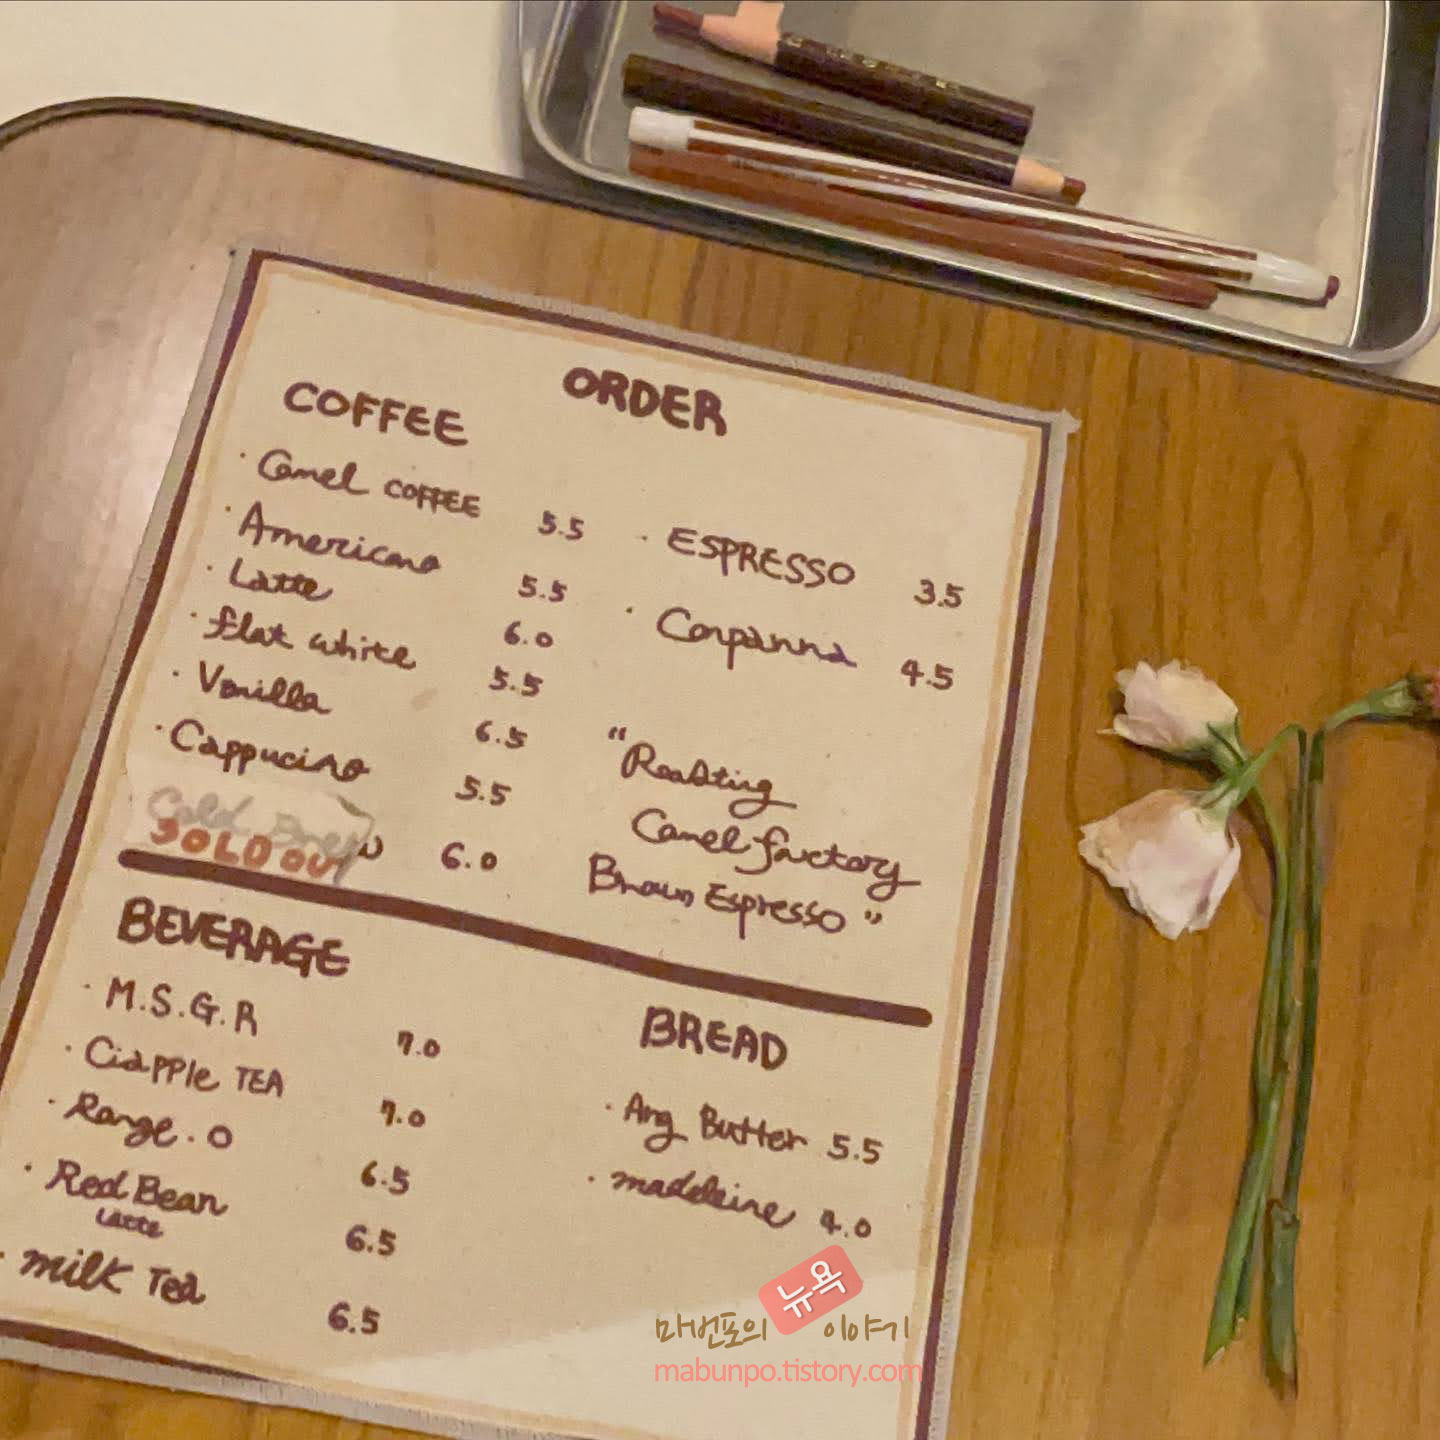 ORDER
COFFEE
· Camel COFFEE 5.5
· Americano 5.5
· Latte 6.0
· flat white 5.5
· Vanilla 6.5
· Cappucino 5.5
Cold Brew 6.0
SOLD OUT
· ESPRESSO 3.5
· Conpanna 4.5
"Roasting
Camel factory
Brown Espresso"
BEVERAGE
· M.S.G.R 7.0
· Ciapple TEA 7.0
· Range.O 6.5
· Red Bean
Latte 6.5
· milk Tea 6.5
BREAD
· Ang Butter 5.5
· madeleine 4.0
마번포의 뉴욕 이야기
mabunpo.tistory.com